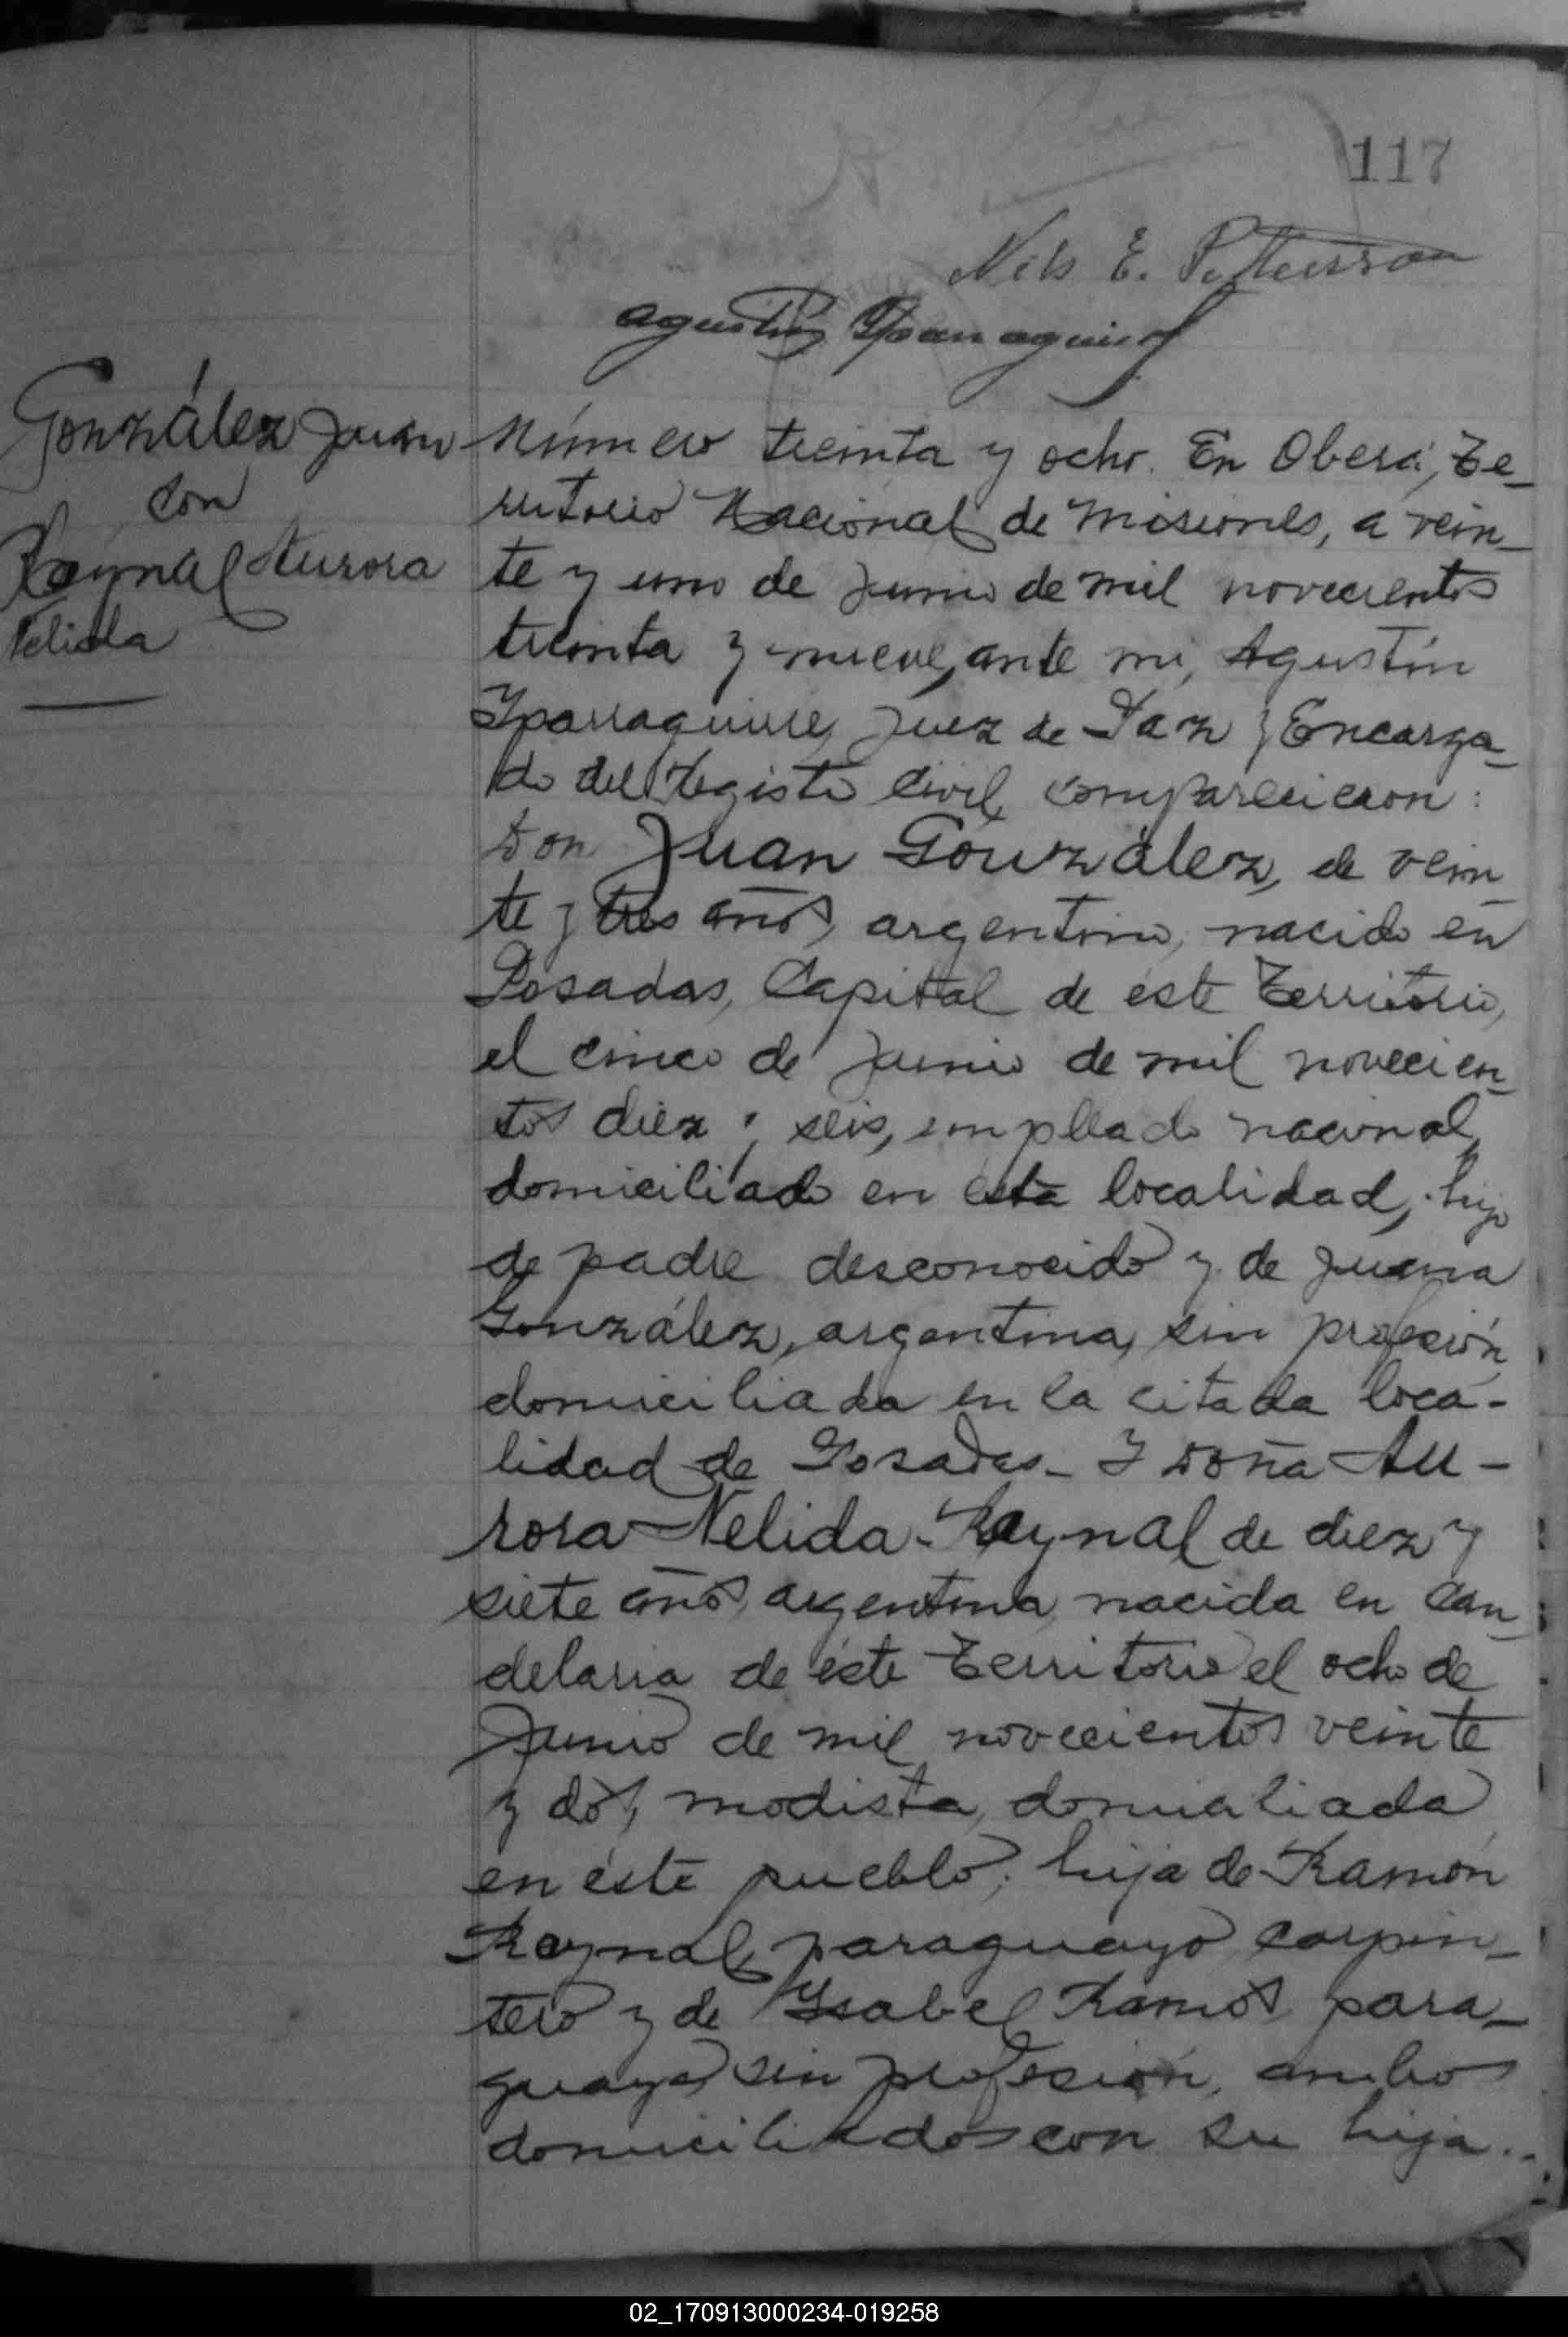 117
Nils E. Petterson
Agustín Yparraguirre
González Juan
con
Reynal Aurora
Nelida
Número treinta y ocho. En Oberá, Te-
rritorio Nacional de Misiones, a vein-
te y uno de Junio de mil novecientos
treinta y nueve, ante mi, Agustín
Yparraguirre, Juez de Paz y Encarga-
do del Registro Civil, comparecieron:
Don Juan González, de vein-
te y tres años, argentino, nacido en
Posadas, Capital de éste Territorio,
el cinco de Junio de mil novecien-
tos diez y seis, empleado nacional,
domiciliado en ésta localidad, hijo
de padre desconocido y de Juana
González, argentina, sin profesión,
domiciliada en la citada loca-
lidad de Posadas - Y Doña Au-
rora Nelida Reynal de diez y
siete años, argentina, nacida en Can-
delaria de éste Territorio el ocho de
Junio de mil novecientos veinte
y dos, modista, domiciliada
en éste pueblo; hija de Ramón
Reynal, paraguayo, carpin-
tero y de Ysabel Ramos, para-
guaya, sin profesión, ambos
domiciliados con su hija..
02_170913000234-019258